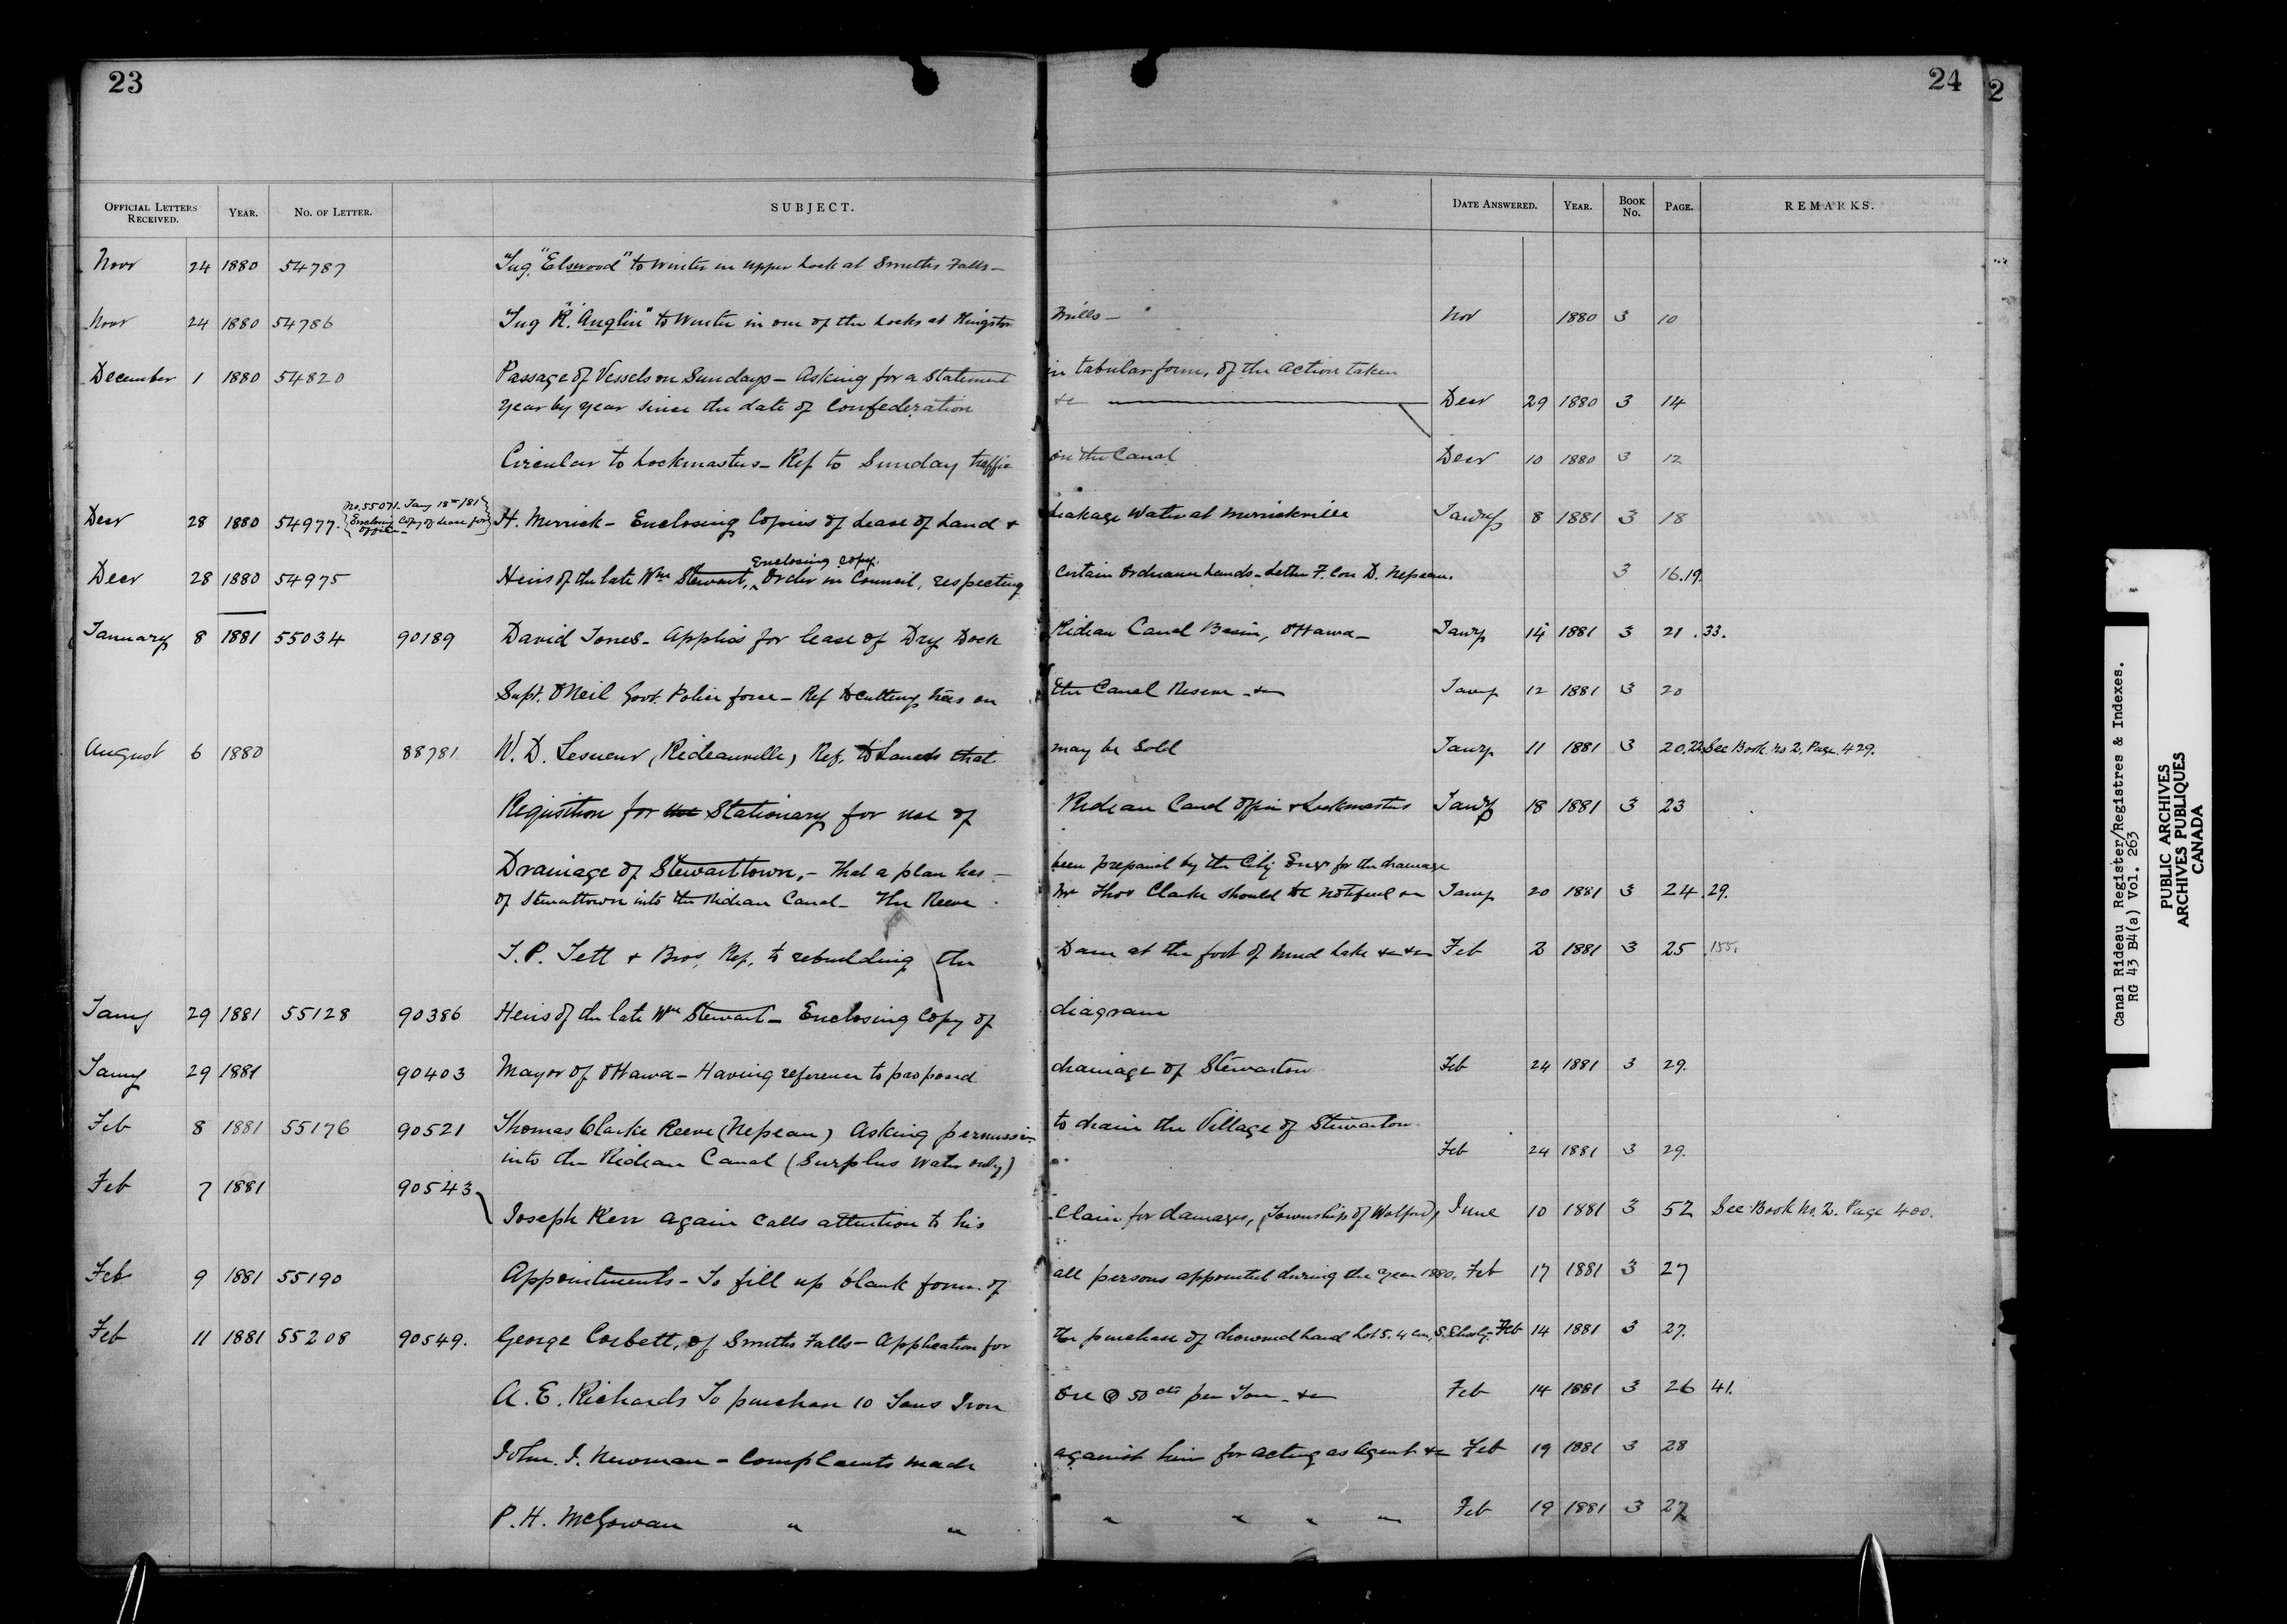 23
24
2
OFFICIAL LETTERS RECEIVED. YEAR. NO. OF LETTER. SUBJECT. DATE ANSWERED. YEAR. BOOK No. PAGE. REMARKS.
Novr 24 1880 54787 Tug "Elswood" to Winter in upper Lock at Smiths Falls—
Novr 24 1880 54786 Tug "R. Anglin" to Winter in one of the Locks at Kingston Mills— Nov 1880 3 10
December 1 1880 54820 Passage of Vessels on Sundays— Asking for a Statement in tabular form, of the action taken
Year by Year since the date of Confederation &c Decr 29 1880 3 14
Circular to Lockmasters— Ref to Sunday traffic on the Canal Decr 10 1880 3 12
No. 55071. Jany 18th/81
Enclosing Copy of Lease for office—
Decr 28 1880 54977. H. Merrick— Enclosing Copies of Lease of Land & Leakage Water at Merrickville Jany 8 1881 3 18
Enclosing copy.
Decr 28 1880 54975 Heirs of the late Wm Stewart, Order in Council, respecting certain Ordnance Lands— Letter F. Con D. Nepean. 3 16.19.
January 8 1881 55034 90189 David Jones— Applies for lease of Dry Dock Rideau Canal Basin, Ottawa— Jany 14 1881 3 21 .33.
Supt. O'Neil Govt. Police force— Ref to cutting trees on the Canal Reserve —&c Jany 12 1881 3 20
August 6 1880 88781 W. D. Lesueur, (Rideauville) Ref. to Lands that may be Sold Jany 11 1881 3 20,22, See Book No 2, Page 429.
Requisition for Stationary for use of Rideau Canal Office & Lockmasters Jany 18 1881 3 23
Drainage of Stewarttown,— That a plan has— been prepared by the City Engr for the drainage
of Stewarttown into the Rideau Canal— The Reeve Mr Thos Clarke should be notified &c Jany 20 1881 3 24 .29.
J. P. Tett & Bros, Ref. to rebuilding the Dam at the foot of Mud Lake &c &c Feb 2 1881 3 25 .155.
Jany 29 1881 55128 90386 Heirs of the late Wm Stewart— Enclosing Copy of diagram
Jany 29 1881 90403 Mayor of Ottawa— Having reference to proposed drainage of Stewarton Feb 24 1881 3 29.
Feb 8 1881 55176 90521 Thomas Clarke Reeve (Nepean) Asking permission to drain the Village of Stewarton
into the Rideau Canal (Surplus Water only) Feb 24 1881 3 29.
Feb 7 1881 90543
Joseph Kerr again calls attention to his Claim for damages, (Township of Wolford), June 10 1881 3 52 See Book No. 2. Page 400.
Feb 9 1881 55190 Appointments— To fill up blank form of all persons appointed during the year 1880. Feb 17 1881 3 27
Feb 11 1881 55208 90549. George Corbett, of Smiths Falls— Application for the purchase of drowned land Lot 5. 4 Con, S. Elmsley— Feb 14 1881 3 27.
A. E. Richards To purchase 10 Tons Iron Ore @ 50 cts per Ton —&c Feb 14 1881 3 26 41.
John. J. Newman— Complaints made against him for acting as Agent &c Feb 19 1881 3 28
P. H. McGowan " " " " " " Feb 19 1881 3 27
Canal Rideau Register/Registres & Indexes.
RG 43 B4(a) Vol. 263
PUBLIC ARCHIVES
ARCHIVES PUBLIQUES
CANADA